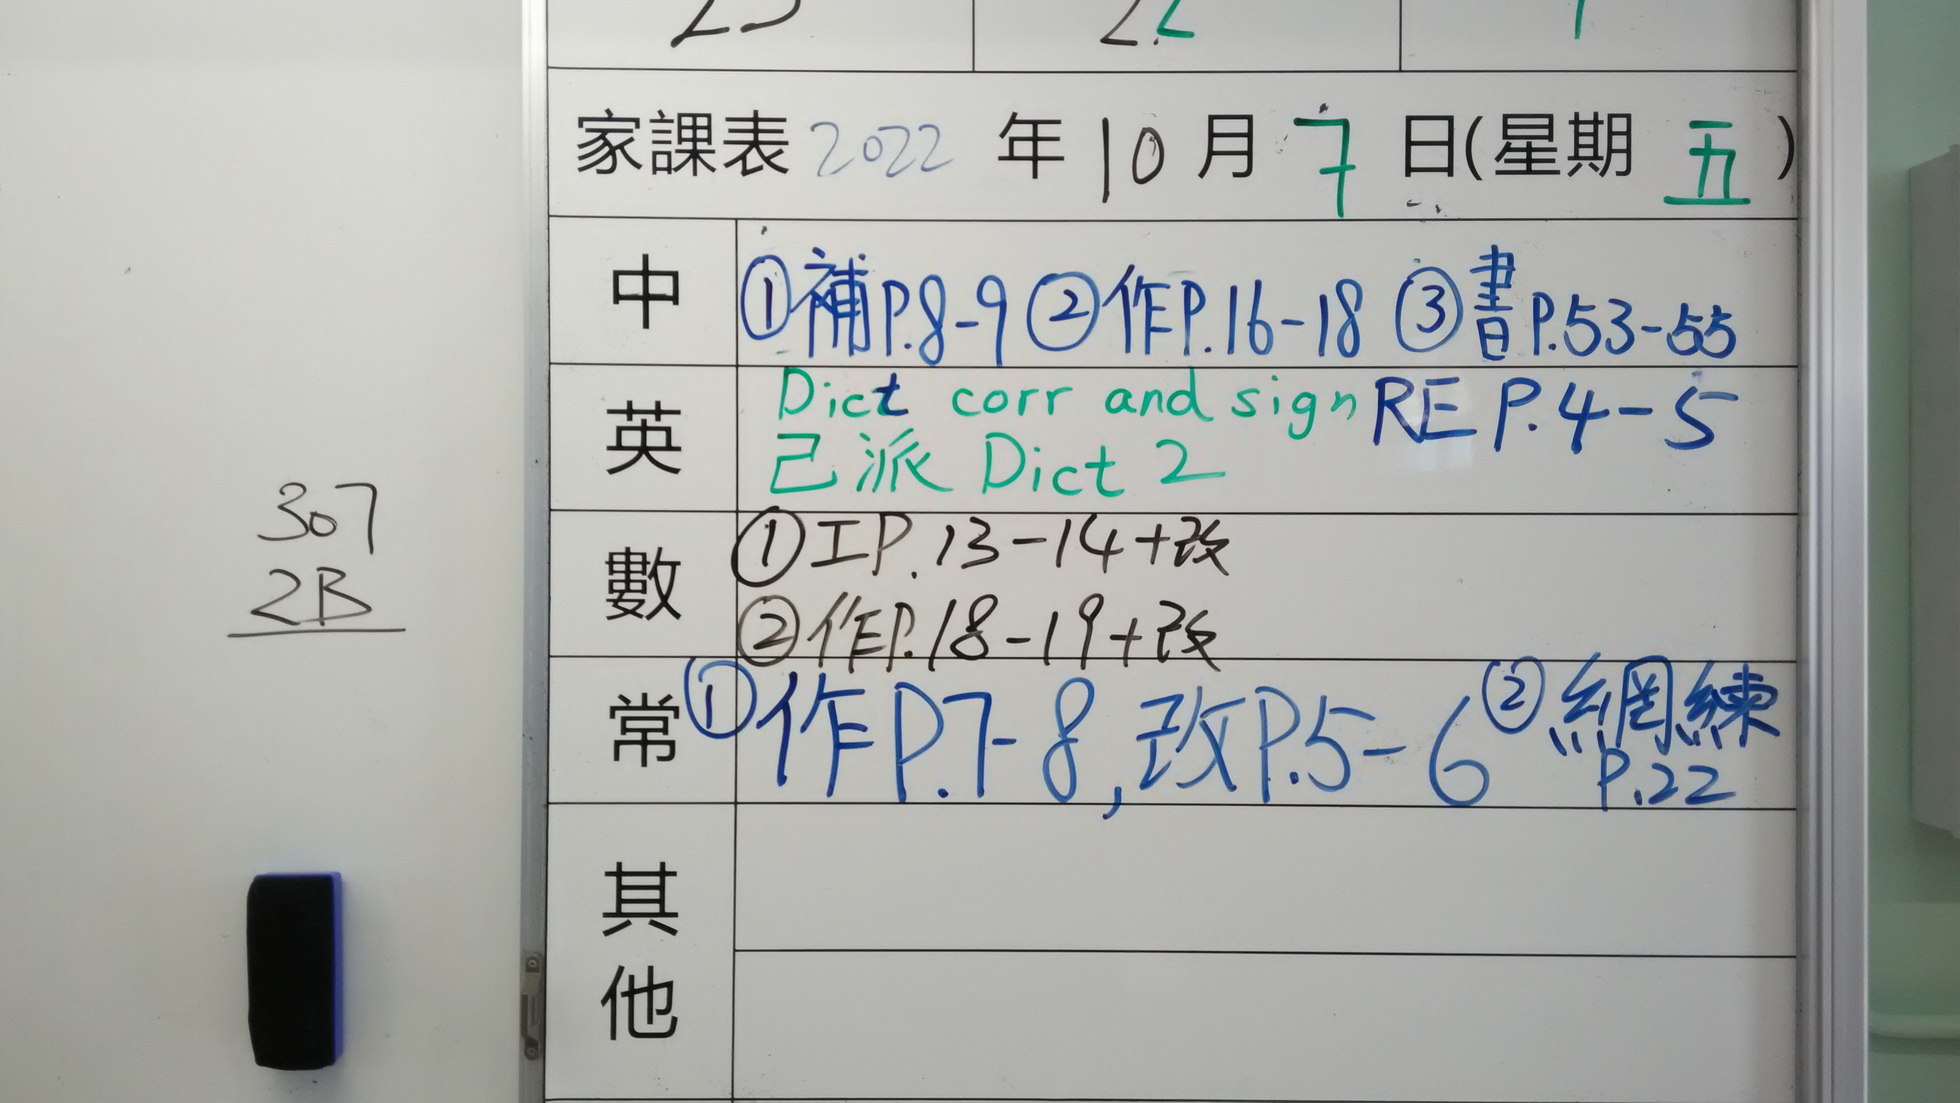 家課表 2022 年 10 月 7 日(星期 五 )
中 ①補P.8-9 ②作P.16-18 ③書P.53-55
英 Dict corr and sign RE P.4-5
己派 Dict 2
數 ①工P.13-14+改
②作P.18-19+改
常 ①作P.7-8,改P.5-6 ②網練
P.22
其
他
307
2B